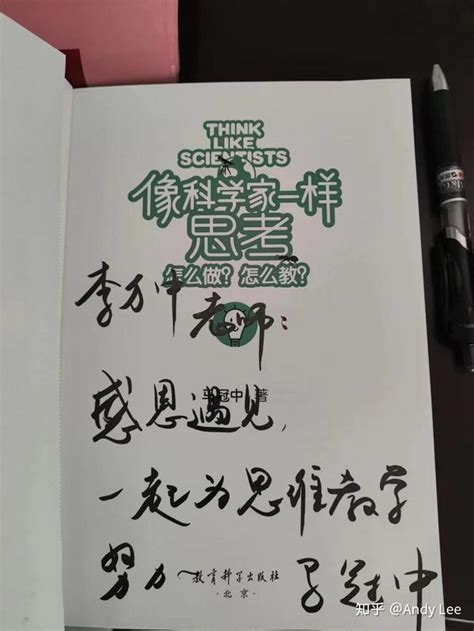 THINK
LIKE
SCIENTISTS
像科学家一样
思考
怎么做？怎么教？
李万中老师：
马冠中 著
感恩遇见，
一起为思维教学
努力
教育科学出版社
·北京·
马冠中
知乎 @Andy Lee